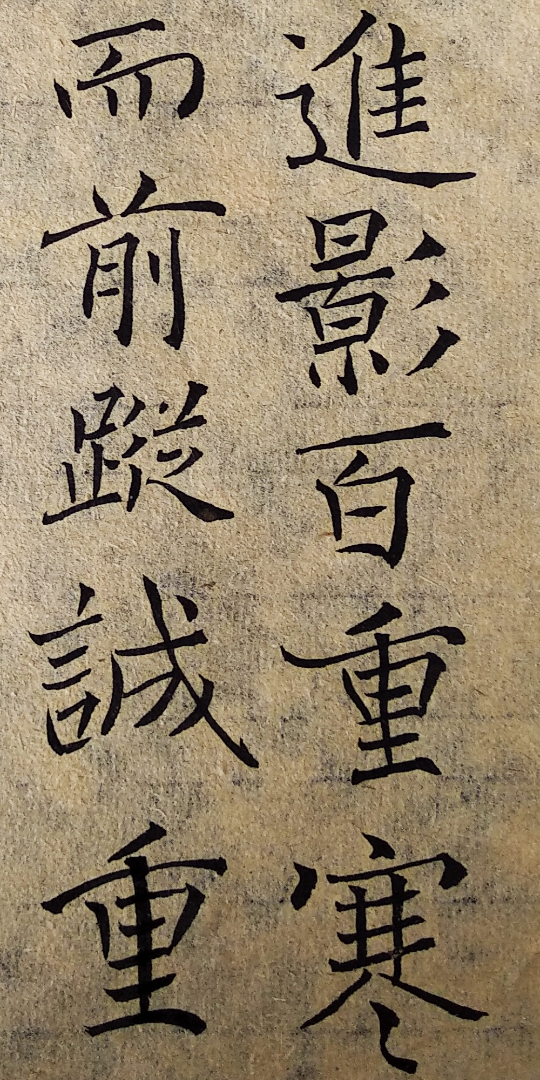 進影百重寒
而前蹤誠重